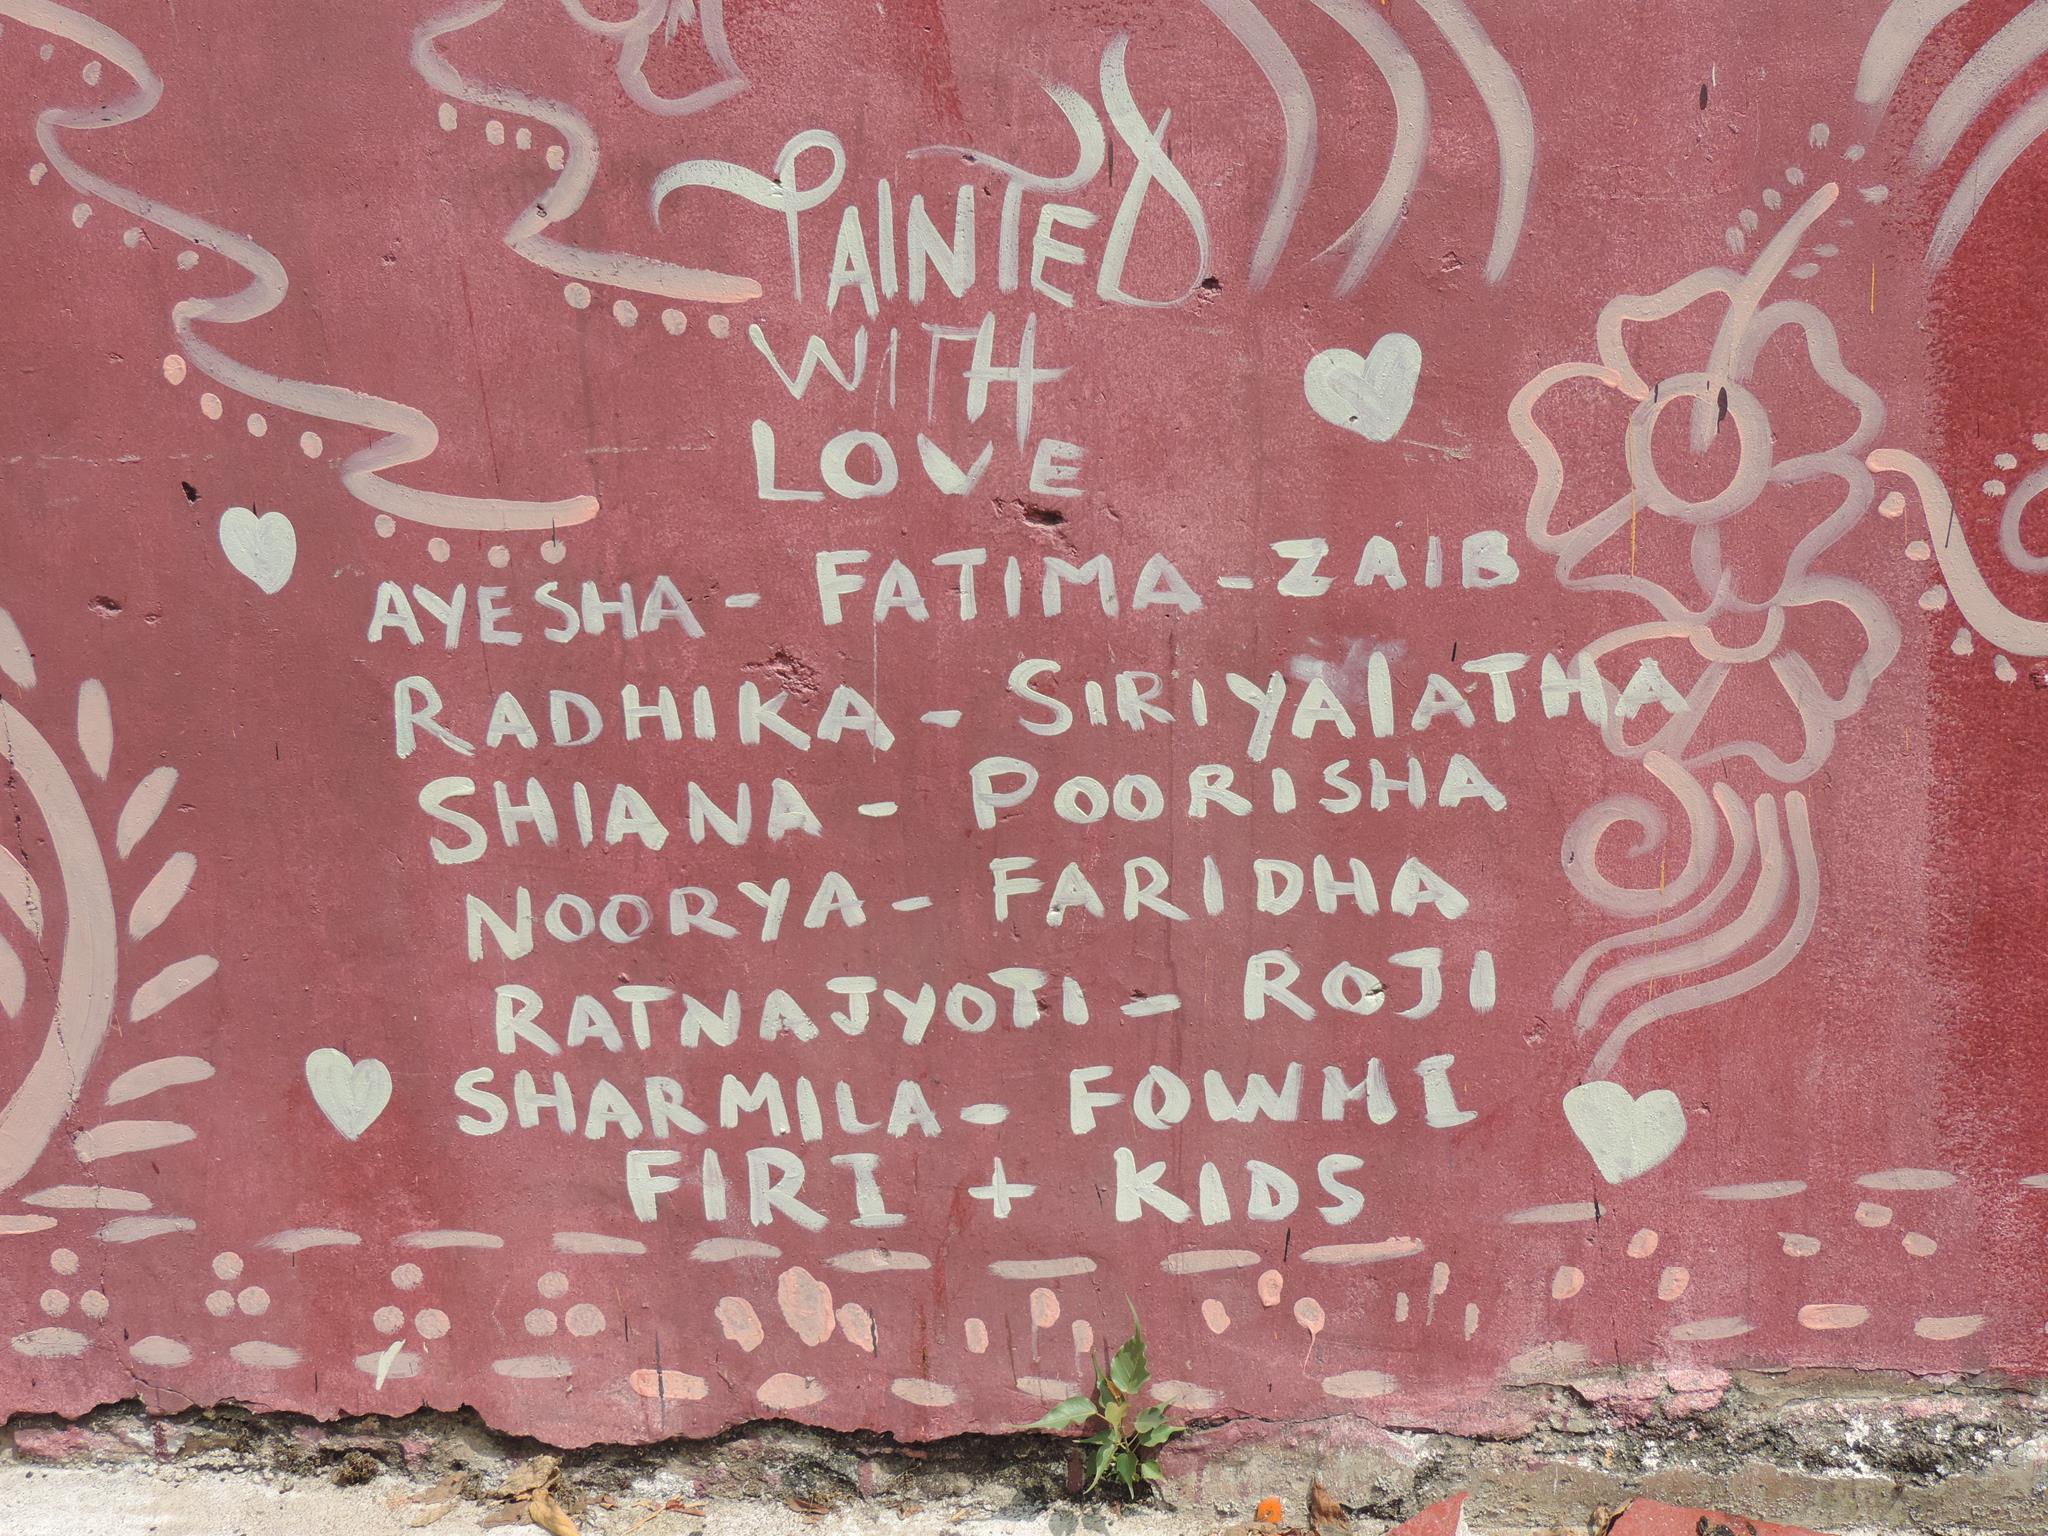 PAINTED
WITH
LOVE
AYESHA - FATIMA - ZAIB
RADHIKA - SIRIYALATHA
SHIANA - POORISHA
NOORYA - FARIDHA
RATNAJYOTI - ROJI
SHARMILA - FOWMI
FIRI + KIDS